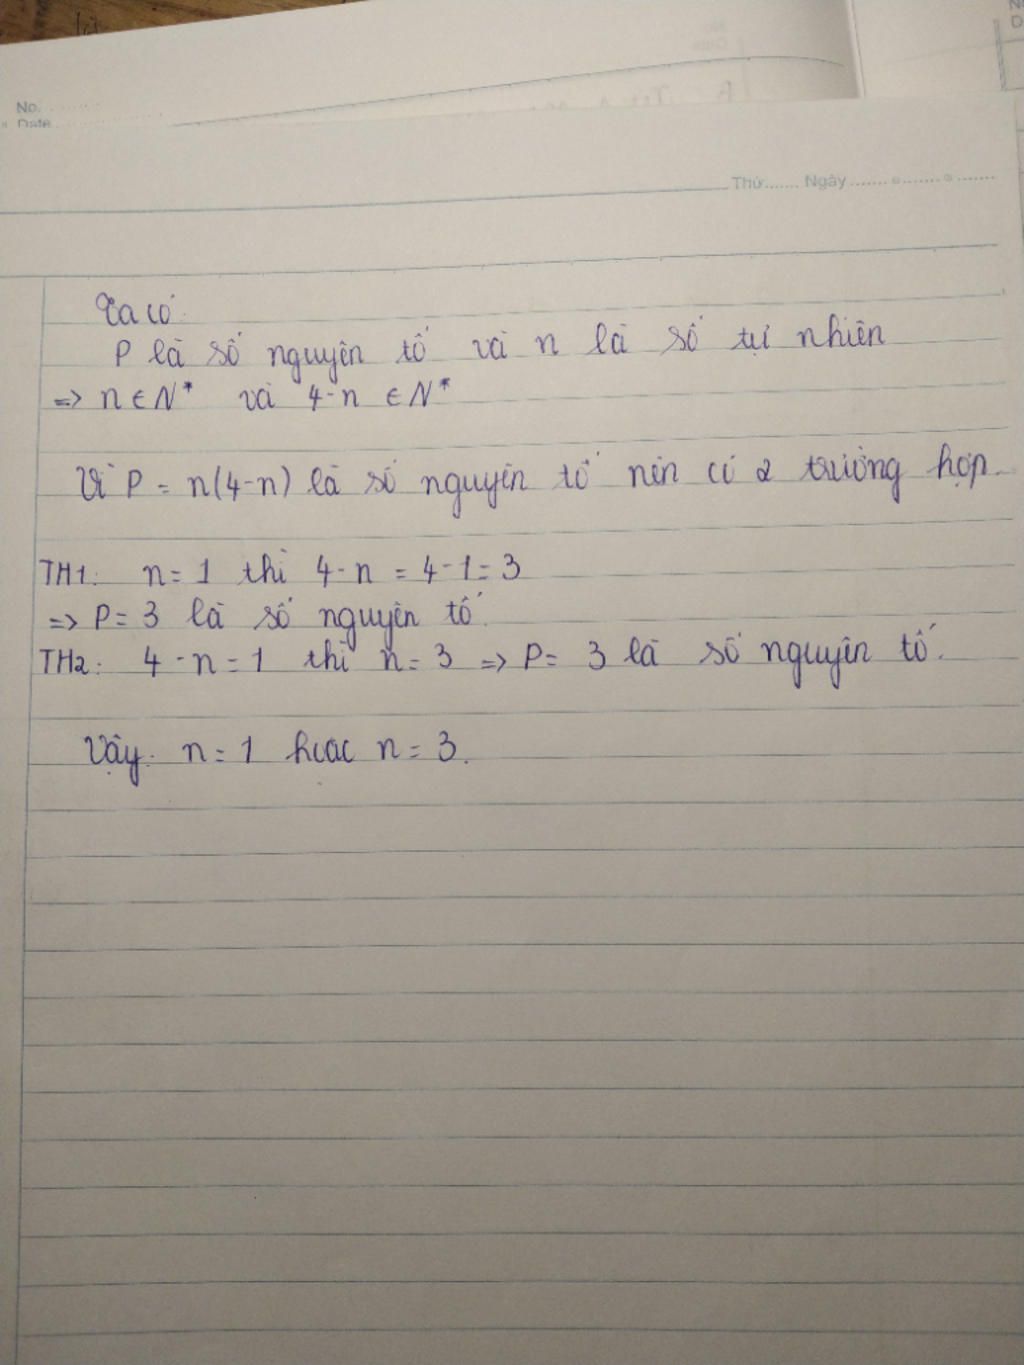 No.
Date
Thứ....... Ngày
Ta có:
P là số nguyên tố và n là số tự nhiên
=> n ∈ N* và 4-n ∈ N*
Vì P = n(4-n) là số nguyên tố nên có 2 trường hợp.
TH1: n = 1 thì 4-n = 4-1 = 3
=> P = 3 là số nguyên tố.
TH2: 4-n = 1 thì n = 3 => P = 3 là số nguyên tố.
Vậy: n = 1 hoặc n = 3.